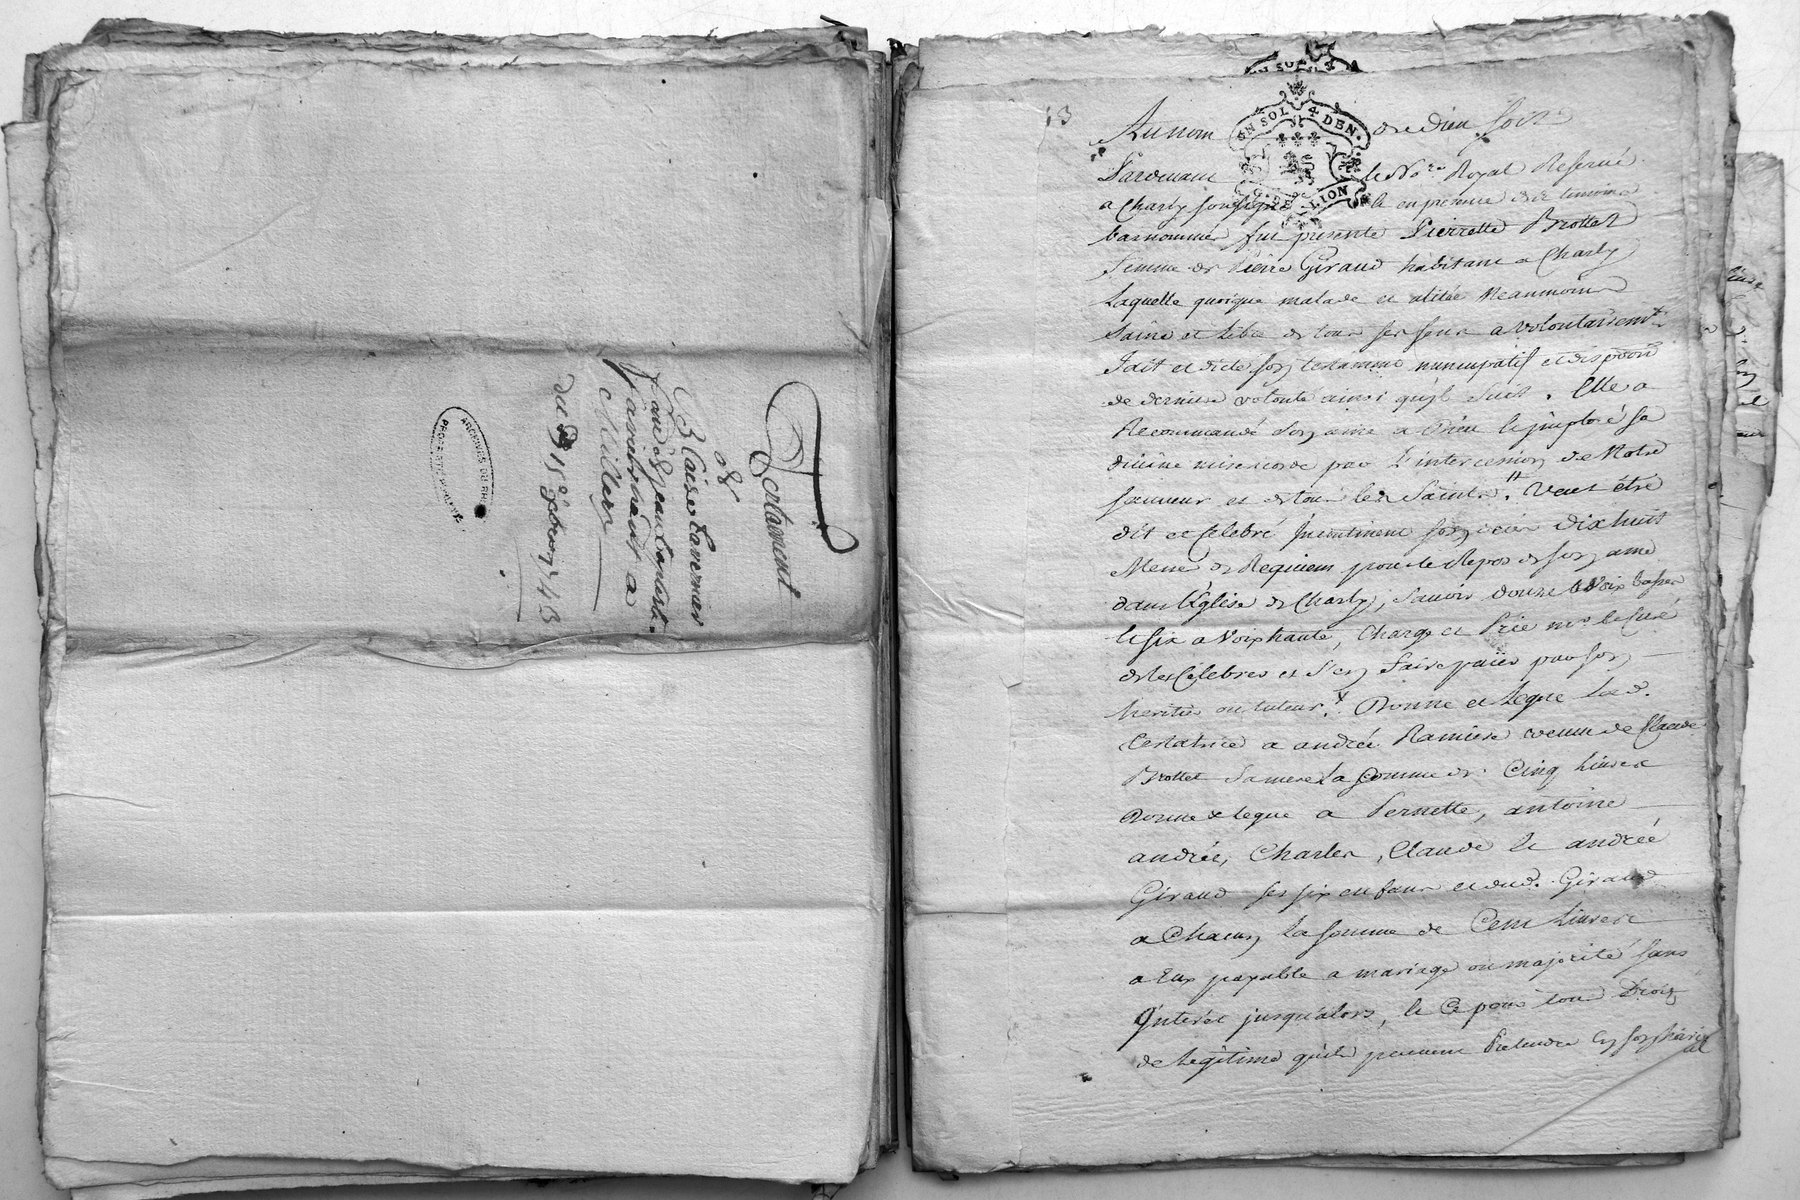 Testament
de
Blaise Tavernier
du 15e 1743
ARCHIVES DU RHÔNE
13
UN SOL 4 DEN.
G. DE LION
Au nom de Dieu soit
Pardevant le No.re Royal Reservé
a Charly soussigné & en presence des temoins
bas nommés fut presente Pierrette Brottet
femme de Pierre Giraud habitant a Charly
Laquelle quoique malade et alitée Neanmoins
Saine et Libre de tous ses sens a volontairemt
fait et dicté son testament nuncupatif et disposon
de derniere volonté ainsi qu'il suit. Elle a
Recommandé son ame a Dieu & imploré sa
divine misericorde par L'intercession de Notre
sauveur et de tous les Saints. Veut être
dit et Celebré Incontinent son decès Dix huit
Messe de Requiem pour le Repos de son ame
dans L'Eglise de Charly, savoir douze à Voix basse
& six a Voix haute, Charge et Prie mr le Curé
de les Celebrer et s'en faire païer par son
heritier ou tuteur. Donne et Legue lad.
testatrice a andrée Ramiere veuve de Claude
Brottet sa mere La somme de Cinq livres
Donne & legue a Pernette, antoine
andrée, Charles, Claude & andréé
Giraud ses six enfans et dud. Giraud
a Chacun la somme de Cent Livres
a Eux payable a mariage ou majorité sans
Interet jusqu'alors, & Ce pour tout Droit
de Legitime qu'ils peuvent Pretendre en son